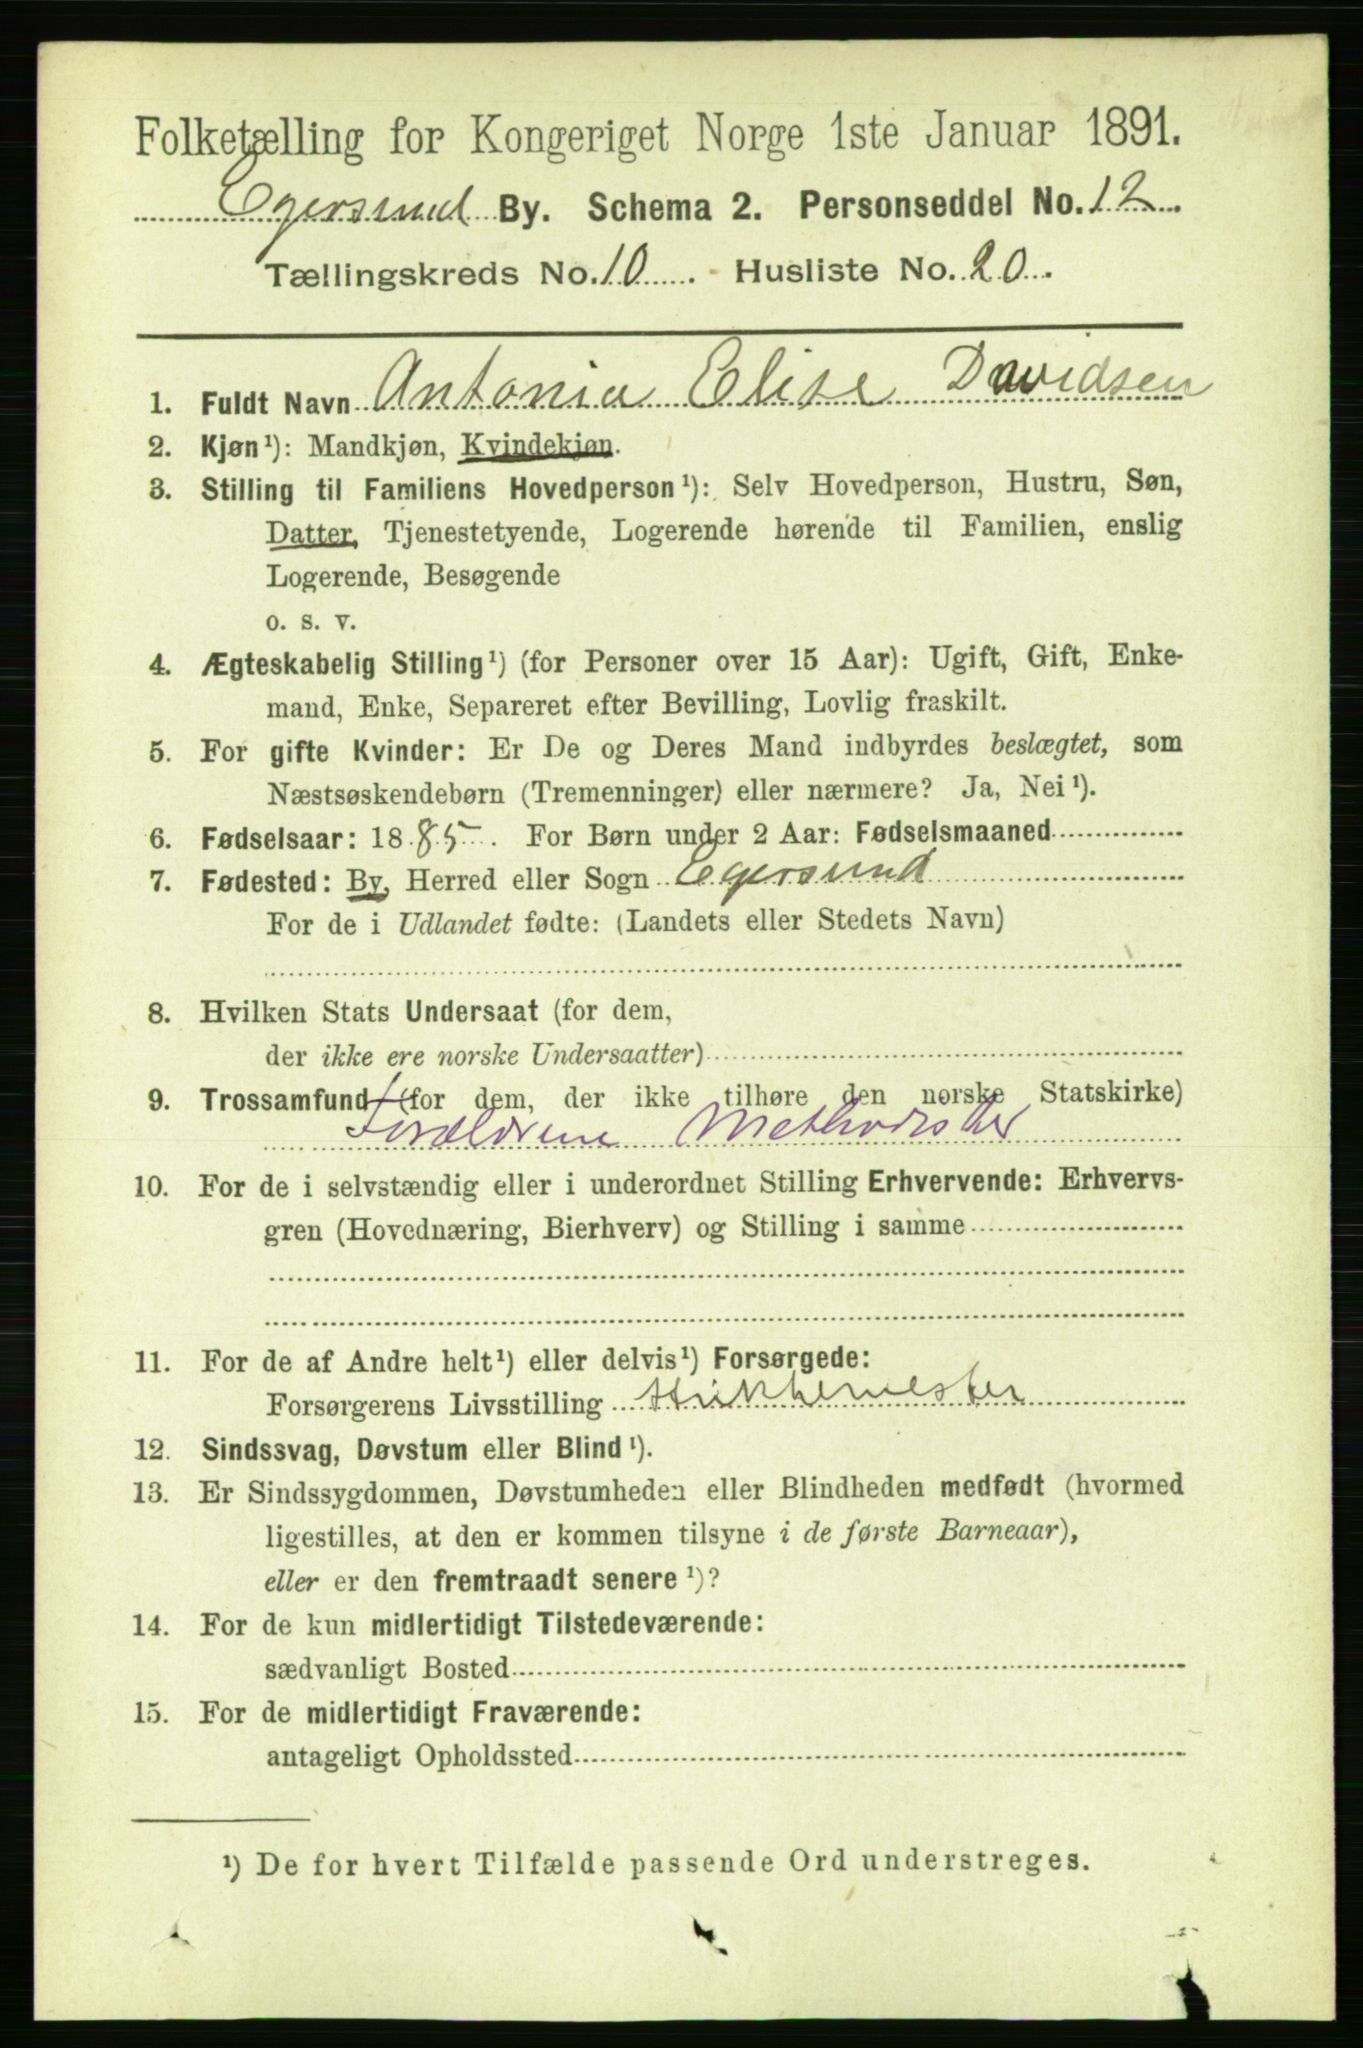 Folketælling for Kongeriget Norge 1ste Januar 1891.
Egersund By. Schema 2. Personseddel No. 12.
Tællingskreds No. 10. Husliste No. 20.
1. Fuldt Navn Antonia Elise Davidsen
2. Kjøn¹): Mandkjøn, Kvindekjøn.
3. Stilling til Familiens Hovedperson¹): Selv Hovedperson, Hustru, Søn,
Datter, Tjenestetyende, Logerende hørende til Familien, enslig
Logerende, Besøgende
o. s. v.
4. Ægteskabelig Stilling¹) (for Personer over 15 Aar): Ugift, Gift, Enke-
mand, Enke, Separeret efter Bevilling, Lovlig fraskilt.
5. For gifte Kvinder: Er De og Deres Mand indbyrdes beslægtet, som
Næstsøskendebørn (Tremenninger) eller nærmere? Ja, Nei¹).
6. Fødselsaar: 1885. For Børn under 2 Aar: Fødselsmaaned
7. Fødested: By, Herred eller Sogn Egersund
For de i Udlandet fødte: (Landets eller Stedets Navn)
8. Hvilken Stats Undersaat (for dem,
der ikke ere norske Undersaatter)
9. Trossamfund (for dem, der ikke tilhøre den norske Statskirke)
Forældrene Methodister
10. For de i selvstændig eller i underordnet Stilling Erhvervende: Erhvervs-
gren (Hovednæring, Bierhverv) og Stilling i samme
11. For de af Andre helt¹) eller delvis¹) Forsørgede:
Forsørgerens Livsstilling
12. Sindssvag, Døvstum eller Blind¹).
13. Er Sindssygdommen, Døvstumheden eller Blindheden medfødt (hvormed
ligestilles, at den er kommen tilsyne i de første Barneaar),
eller er den fremtraadt senere¹)?
14. For de kun midlertidigt Tilstedeværende:
sædvanligt Bosted
15. For de midlertidigt Fraværende:
antageligt Opholdssted
¹) De for hvert Tilfælde passende Ord understreges.